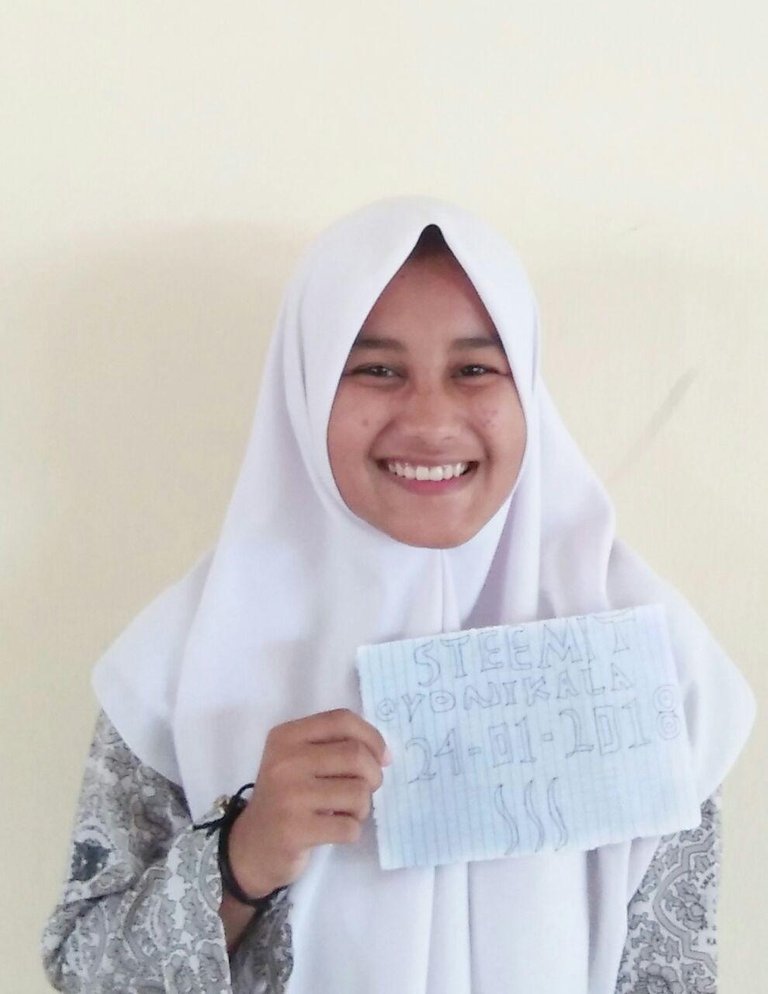 STEEMIT
@YONIKALA
24-01-2018